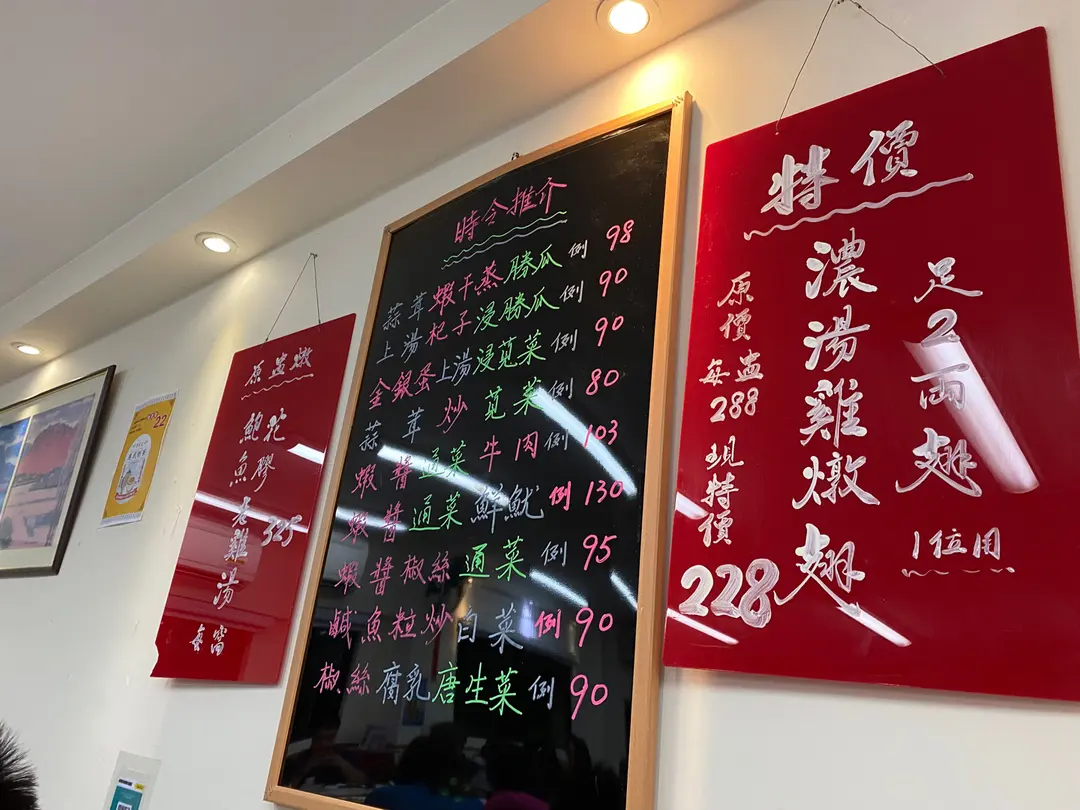 原盅燉
鮑魚
花膠
老雞湯
325
每窩
時令推介
蒜茸蝦干蒸勝瓜 例 98
上湯杞子浸勝瓜 例 90
金銀蛋上湯浸莧菜 例 90
蒜茸炒莧菜 例 80
蝦醬通菜牛肉 例 103
蝦醬通菜鮮魷 例 130
蝦醬椒絲通菜 例 95
鹹魚粒炒白菜 例 90
椒絲腐乳唐生菜 例 90
特價
足2両翅
1位用
濃湯雞燉翅
原價每盅288現特價
228